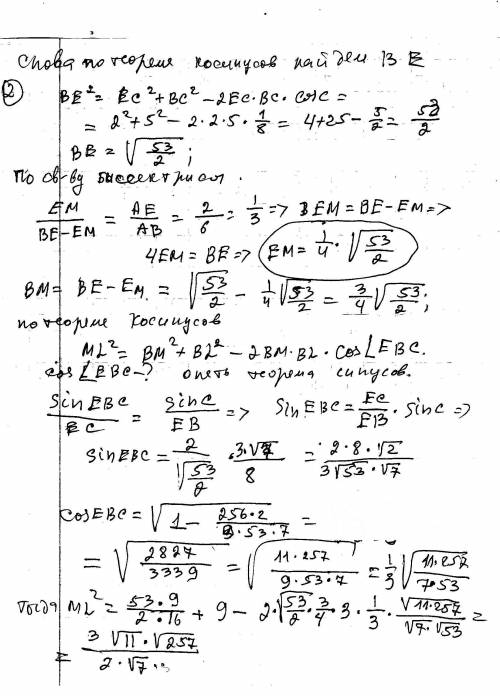 Снова по теореме косинусов найдем BE
2
BE² = EC² + BC² - 2EC·BC·cos C =
= 2² + 5² - 2·2·5·1/8 = 4+25 - 5/2 = 53/2
BE = √(53/2);
По св-ву биссектрисы.
EM/(BE-EM) = AE/AB = 2/6 = 1/3 => BEM = BE-EM =>
4EM = BE => EM = 1/4·√(53/2)
BM = BE - EM = √(53/2) - 1/4√(53/2) = 3/4√(53/2);
по теореме косинусов
ML² = BM² + BL² - 2BM·BL·cos∠EBC.
cos∠EBC-? опять теорема синусов.
sin EBC/EC = sin C/EB => sin EBC = EC/EB · sin C =>
sin EBC = 2/√(53/2) · 3·√7/8 = 2·8·√2/(3√53·√7)
cos EBC = √(1 - 256·2/(9·53·7)) =
= √(2827/3339) = √(11·257/(9·53·7)) = 1/3√(11·257/(7·53))
тогда ML² = 53·9/(2·16) + 9 - 2·√(53/2)·3/4·3·1/3·√(11·257)/(√7·√53) =
= 3√11·√257/(2·√7...